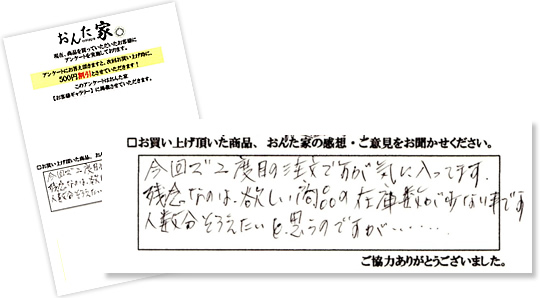 おんた家
現在、商品を買っていただいたお客様に
アンケートを実施しております。
アンケートにお答え頂きますと、次回お買い上げ時に、
500円割引とさせていただきます!
このアンケートはおんた家
【お客様ギャラリー】に掲載させていただきます。
□お買い上げ頂いた商品、お
今回で2度目の
残念なのは、欲し
人数分そろえたい
□お買い上げ頂いた商品、おんた家の感想・ご意見をお聞かせください。
今回で2度目の注文ですが気に入ってます.
残念なのは、欲しい商品の在庫数が少ない事です
人数分そろえたいと思うのですが‥‥‥
ご協力ありがとうございました。